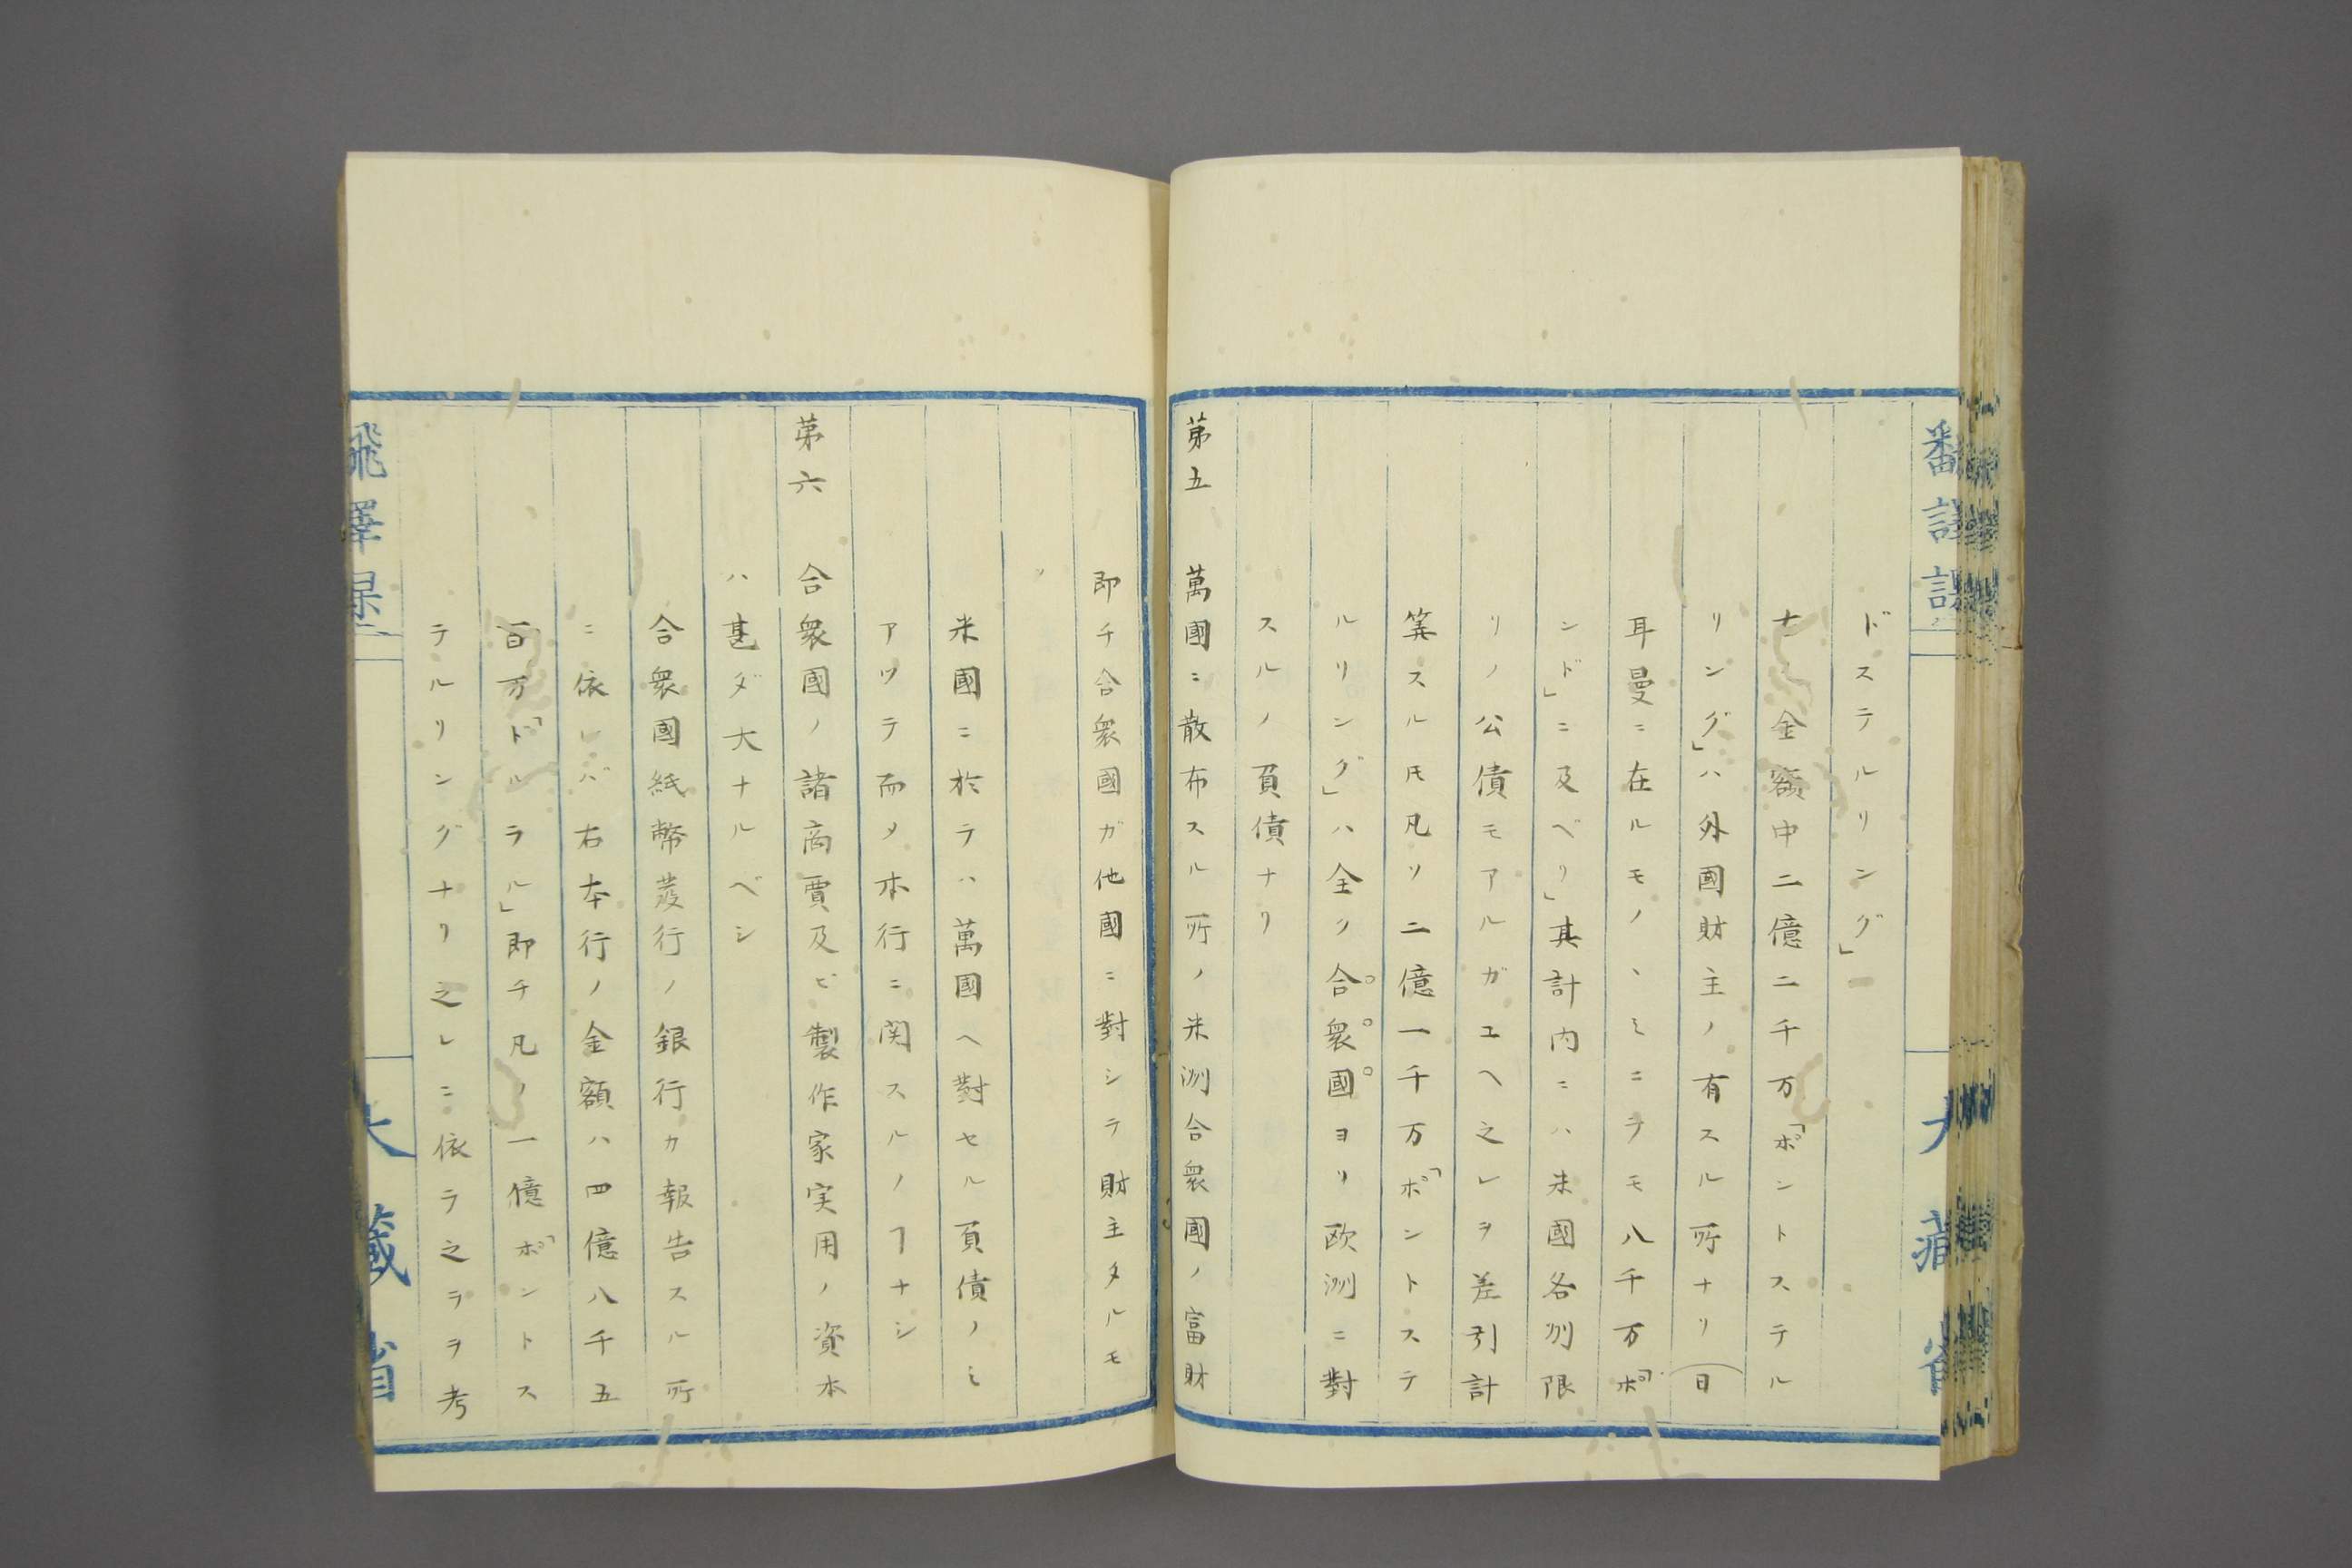 ドステルリング」
ナシ金額中二億二千万「ポントステル
リング」ハ外國財主ノ有スル所ナリ(日
耳曼ニ在ルモノヽミニテモ八千万「ポ
ンド」ニ及ベリ」其計内ニハ米國各州限
リノ公債モアルガユヘ之レヲ差引計
筭スルモ凡ソ二億一千万「ポントステ
ルリング」ハ全ク合衆國ヨリ欧洲ニ對
スルノ負債ナリ
第五 萬國ニ散布スル所ノ米洲合衆國ノ富財
即チ合衆國ガ他國ニ對シテ財主タルモ
ノ
米國ニ於テハ萬國ヘ對セル負債ノミ
アツテ而メ本行ニ関スルノヿナシ
第六 合衆國ノ諸商賈及ビ製作家実用ノ資本
ハ甚ダ大ナルベシ
合衆國紙幣發行ノ銀行カ報告スル所
ニ依レバ右本行ノ金額ハ四億八千五
百万「ドルラル」即チ凡ソ一億「ポントス
テルリングナリ之レニ依テ之ヲ考
大藏省